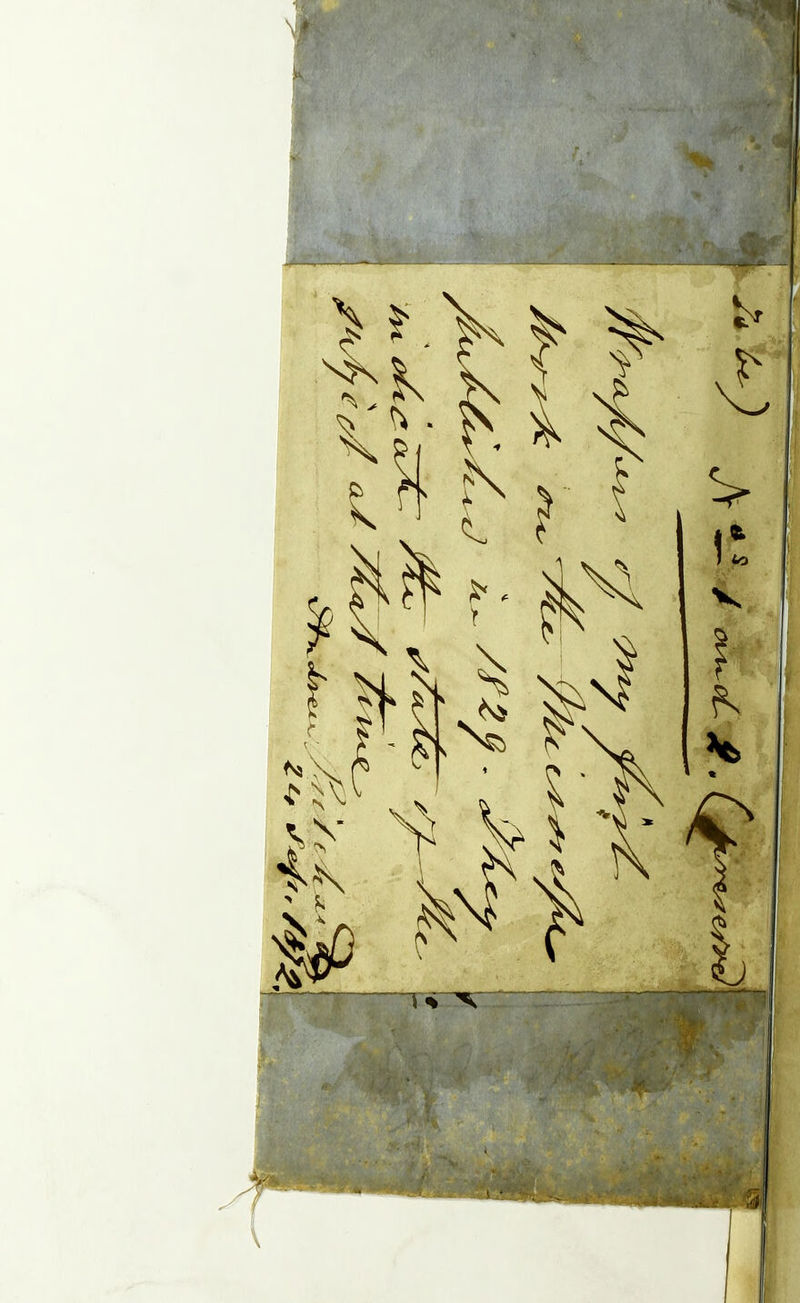 To be) Nos 1 and 2. (preserved
Wrappers of my first
Work on the Microscope
Published in 1829. They
indicate the state of the
subject at that time
Andrew Pritchard
24 Sep. 1872.